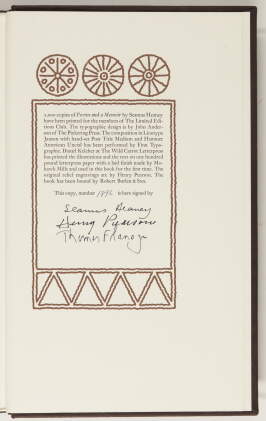 2,000 copies of Poems and a Memoir by Seamus Heaney
have been printed for the members of The Limited Edi-
tions Club. The typographic design is by John Ander-
son of The Pickering Press. The composition in Linotype
Janson with hand-set Post Title Medium and Hammer
American Uncial has been performed by First Typo-
graphic. Daniel Keleher at The Wild Carrot Letterpress
has printed the illustrations and the text on one hundred
pound letterpress paper with a laid finish made by Mo-
hawk Mills and used in this book for the first time. The
original relief engravings are by Henry Pearson. The
book has been bound by Robert Burlen & Son.
This copy, number is here signed by
Seamus Heaney
Henry Pearson
Thomas Flanagan